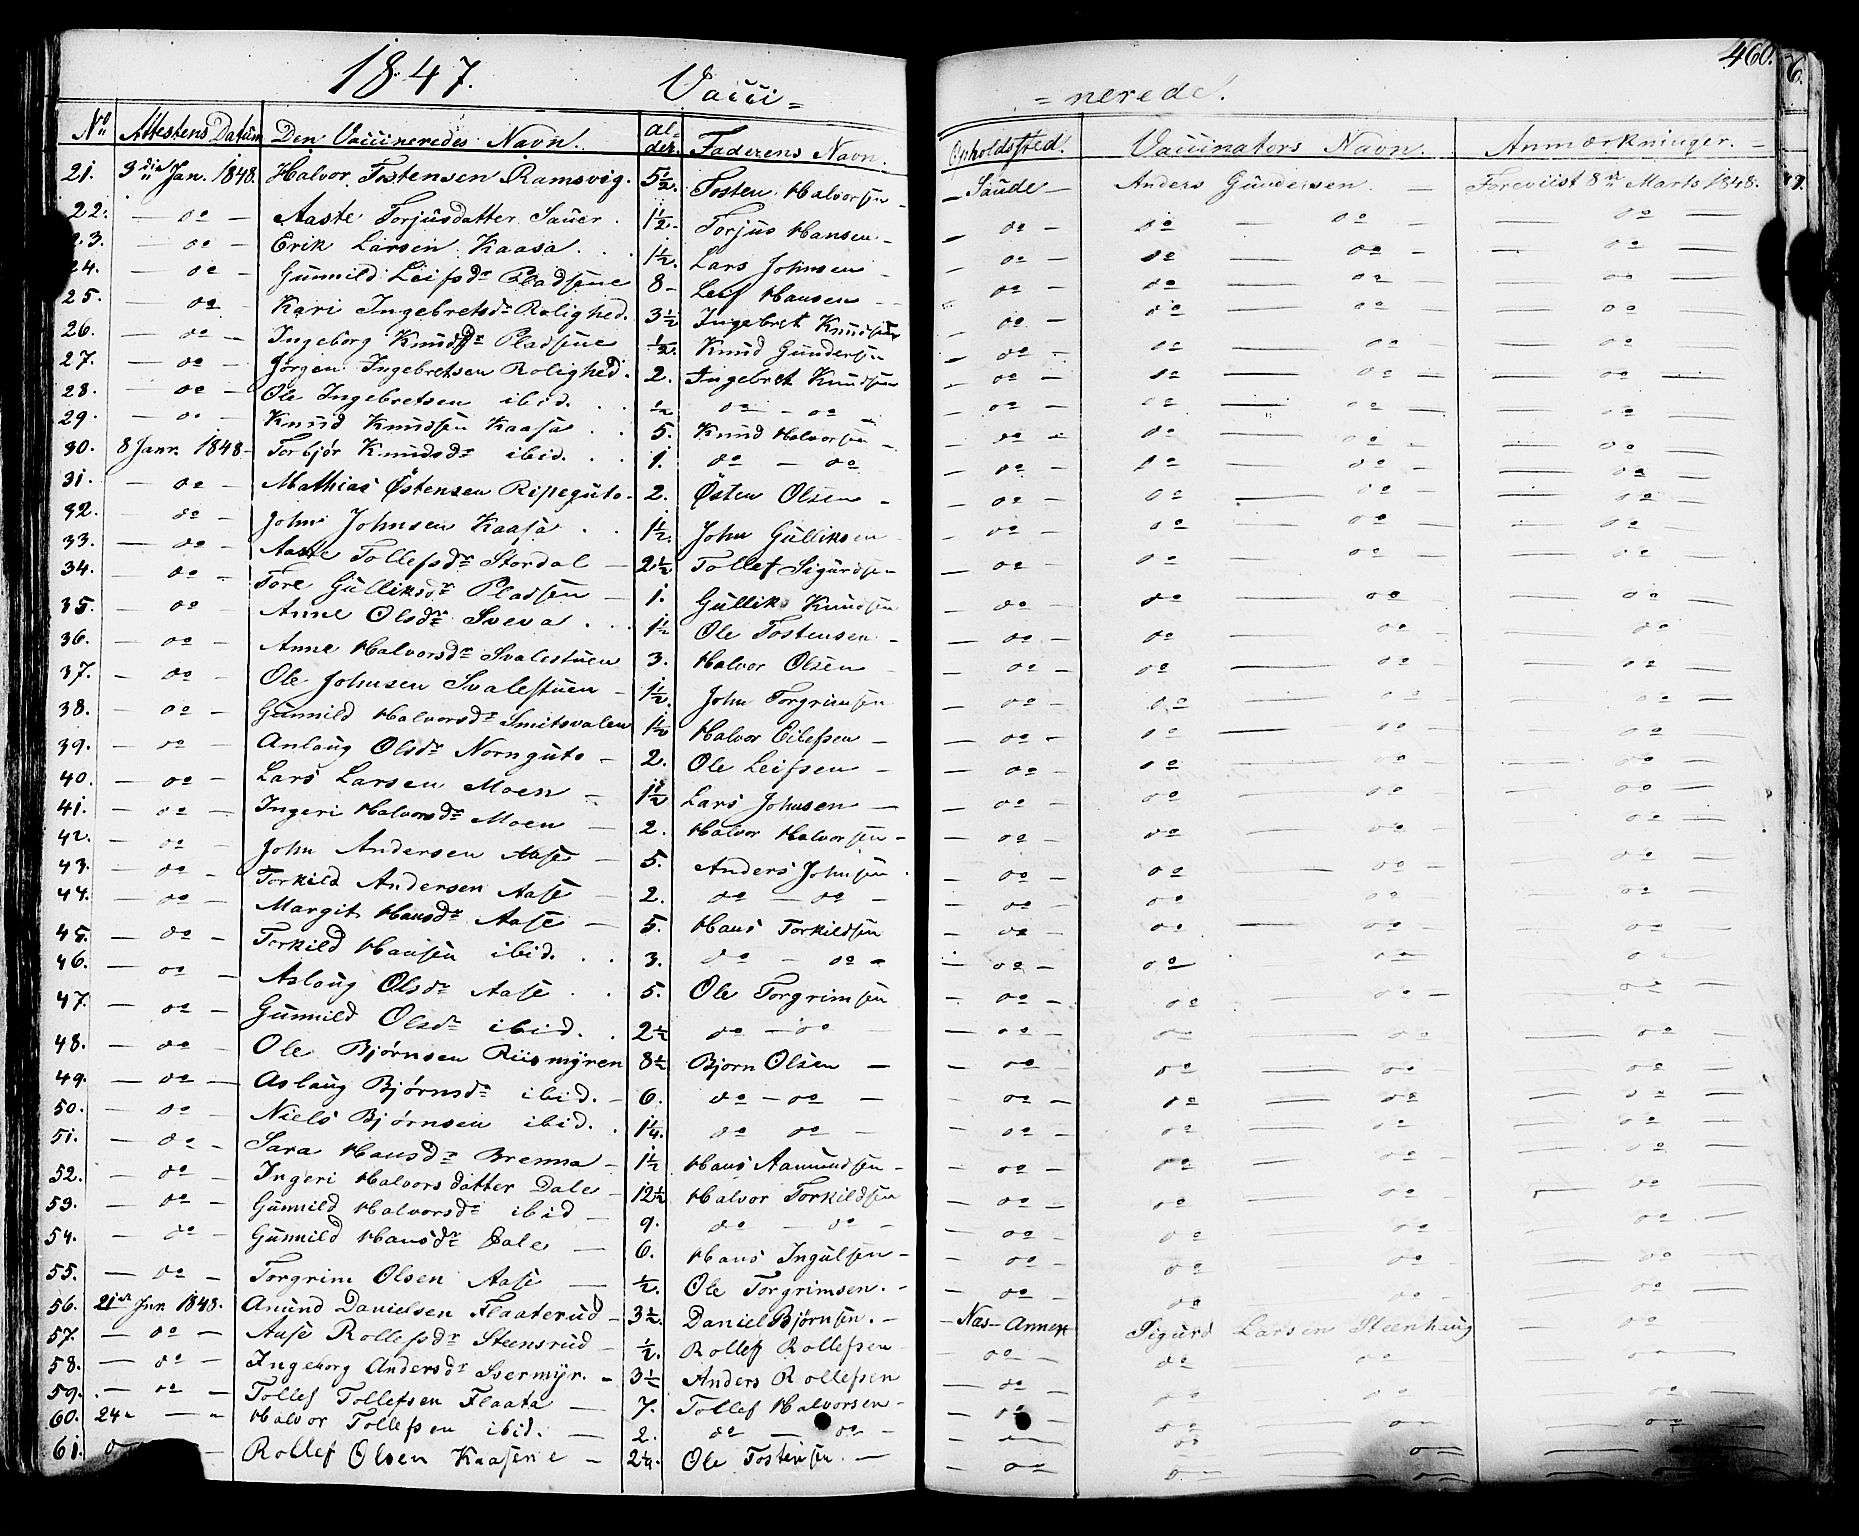 1847. Vacci= =nerede. 460.
No Attestens Datum Den Vaccineredes Navn. Alder. Faderens Navn. Opholdssted. Vaccinators Navn. Anmærkninger.
21. 3die Jan. 1848. Halvor Tostensen Ramsvig. 5½. Tosten Halvorsen – Saude – Anders Gundersen – Foreviist 8de Marts 1848.
22. – do – Aaste Torjusdatter Sauer. 1½ Torjus Hansen – do – do – do – do –
23. – do – Erik Larsen Kaasa 1½. Lars Johnsen – do – do – do – do –
24. – do – Gunnild Leifsdr Pladsene 8 – Leif Hansen – do – do – do – do –
25. – do – Kari Ingebretsdr Rolighed. 3½ Ingebret Knudsen – do – do – do – do –
26. – do – Ingeborg Knudsdr Pladsene ½. Knud Gundersen – do – do – do – do –
27. – do – Jørgen Ingebretsen Rolighed. 2. Ingebret Knudsen – do – do – do – do –
28. – do – Ole Ingebretsen ibid. ½ do – do – do – do – do – do –
29. – do – Knud Knudsen Kaasa 5. Knud Halvorsen – do – do – do – do –
30. 8 Janr. 1848 – Torbjør Knudsdr ibid. 1. do – do – do – do – do – do –
31. – do – Mathias Østensen Ripeguto – 2. Østen Olsen – do – do – do – do –
32. – do – John Johnsen Kaasa 1½. John Gulliksen – do – do – do – do –
33. – do – Aaste Tollefsdr Stordal – 2½ Tollef Sigurdsen – do – do – do – do –
34. – do – Tore Gulliksdr Pladsen – 1. Gullik Knudsen – do – do – do – do –
35. – do – Anne Olsdr Sveva 1½ Ole Tostensen – do – do – do – do –
36. – do – Anne Halvorsdr Svalestuen 3. Halvor Olsen – do – do – do – do –
37. – do – Ole Johnsen Svalestuen – 1½. John Torgrimsen – do – do – do – do –
38. – do – Gunnild Halvorsdr Smitsvalen 1½ Halvor Eilefsen – do – do – do – do –
39. – do – Anlaug Olsdr Nornguto – 2. Ole Leifsen – do – do – do – do –
40. – do – Lars Larsen Moen – 1½ Lars Johnsen – do – do – do – do –
41. – do – Ingeri Halvorsdr Moen – 2. Halvor Halvorsen – do – do – do – do –
42. – do – John Andersen Aase – 5. Anders Johnsen – do – do – do – do –
43. – do – Torkild Andersen Aase – 2. do – do – do – do – do – do –
44. – do – Margit Hansdr Aase – 5. Hans Torkildsen – do – do – do – do –
45. – do – Torkild Hansen ibid. 3. do – do – do – do – do – do –
46. – do – Aslaug Olsdr Aase 5. Ole Torgrimsen – do – do – do – do –
47. – do – Gunnild Olsdr ibid. 2½ do – do – do – do – do – do –
48. – do – Ole Bjørnsen Riismyren 8½ Bjorn Olsen – do – do – do – do –
49. – do – Aslaug Bjørnsdr ibid. – 6. do – do – do – do – do – do –
50. – do – Niels Bjørnsen ibid. 1¼. do do – do – do – do – do –
51. – do – Sara Hansdr Brenna – 1½ Hans Aamundsen – do – do – do – do –
52. – do – Ingeri Halvorsdatter Dale – 12½ Halvor Torkildsen – do – do – do – do –
53. – do – Gunnild Halvorsdr ibid – 9. do – do – do – do – do – do –
54. – do – Gunnild Hansdr Dale – 6. Hans Ingulsen – do – do – do – do –
55. – do – Torgrim Olsen Aase – ½. Ole Torgrimsen. – do – do – do – do –
56. 21de Jnr. 1848. Amund Danielsen Flaaterud – 3½. Daniel Bjørnsen. – Næs – Annex Sigurd Larsen Steenhaug – do –
57. – do – Aase Rollefsdr Steensrud – ½. Rollef Rollefsen – do – do – do – do –
58. – do – Ingeborg Andersdr Svermyr. – 3½ Anders Rollefsen – do – do – do – do –
59. – do – Tollef Tollefsen Flaata – 7. Tollef Halvorsen – do – do – do – do –
60. 24 – – Halvor Tollefsen ibid. – 2. do – do – do – do – do – do –
61. Rollef Olsen Kaasene – 2¼. Ole Tostensen. – do – do – do –